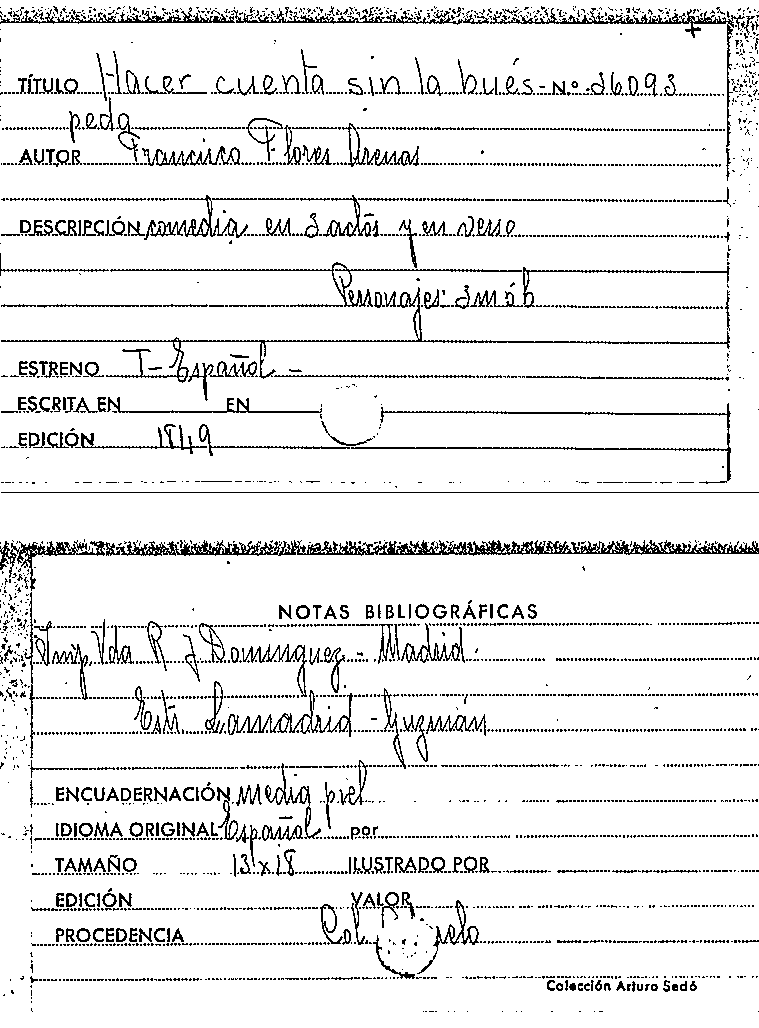 TÍTULO Hacer cuenta sin la bués - Nº 26093
peda
AUTOR Francisco Flores Arenas
DESCRIPCIÓN comedia en 3 actos y en verso
Personajes: 3m 5h
ESTRENO T- Español -
ESCRITA EN EN
EDICIÓN 1849
NOTAS BIBLIOGRÁFICAS
Imp. Vda R J Dominguez - Madrid.
Estr Lamadrid - Guzmán
ENCUADERNACIÓN media piel
IDIOMA ORIGINAL Español por
TAMAÑO 13 x 18 ILUSTRADO POR
EDICIÓN VALOR
PROCEDENCIA Col
Colección Arturo Sedó